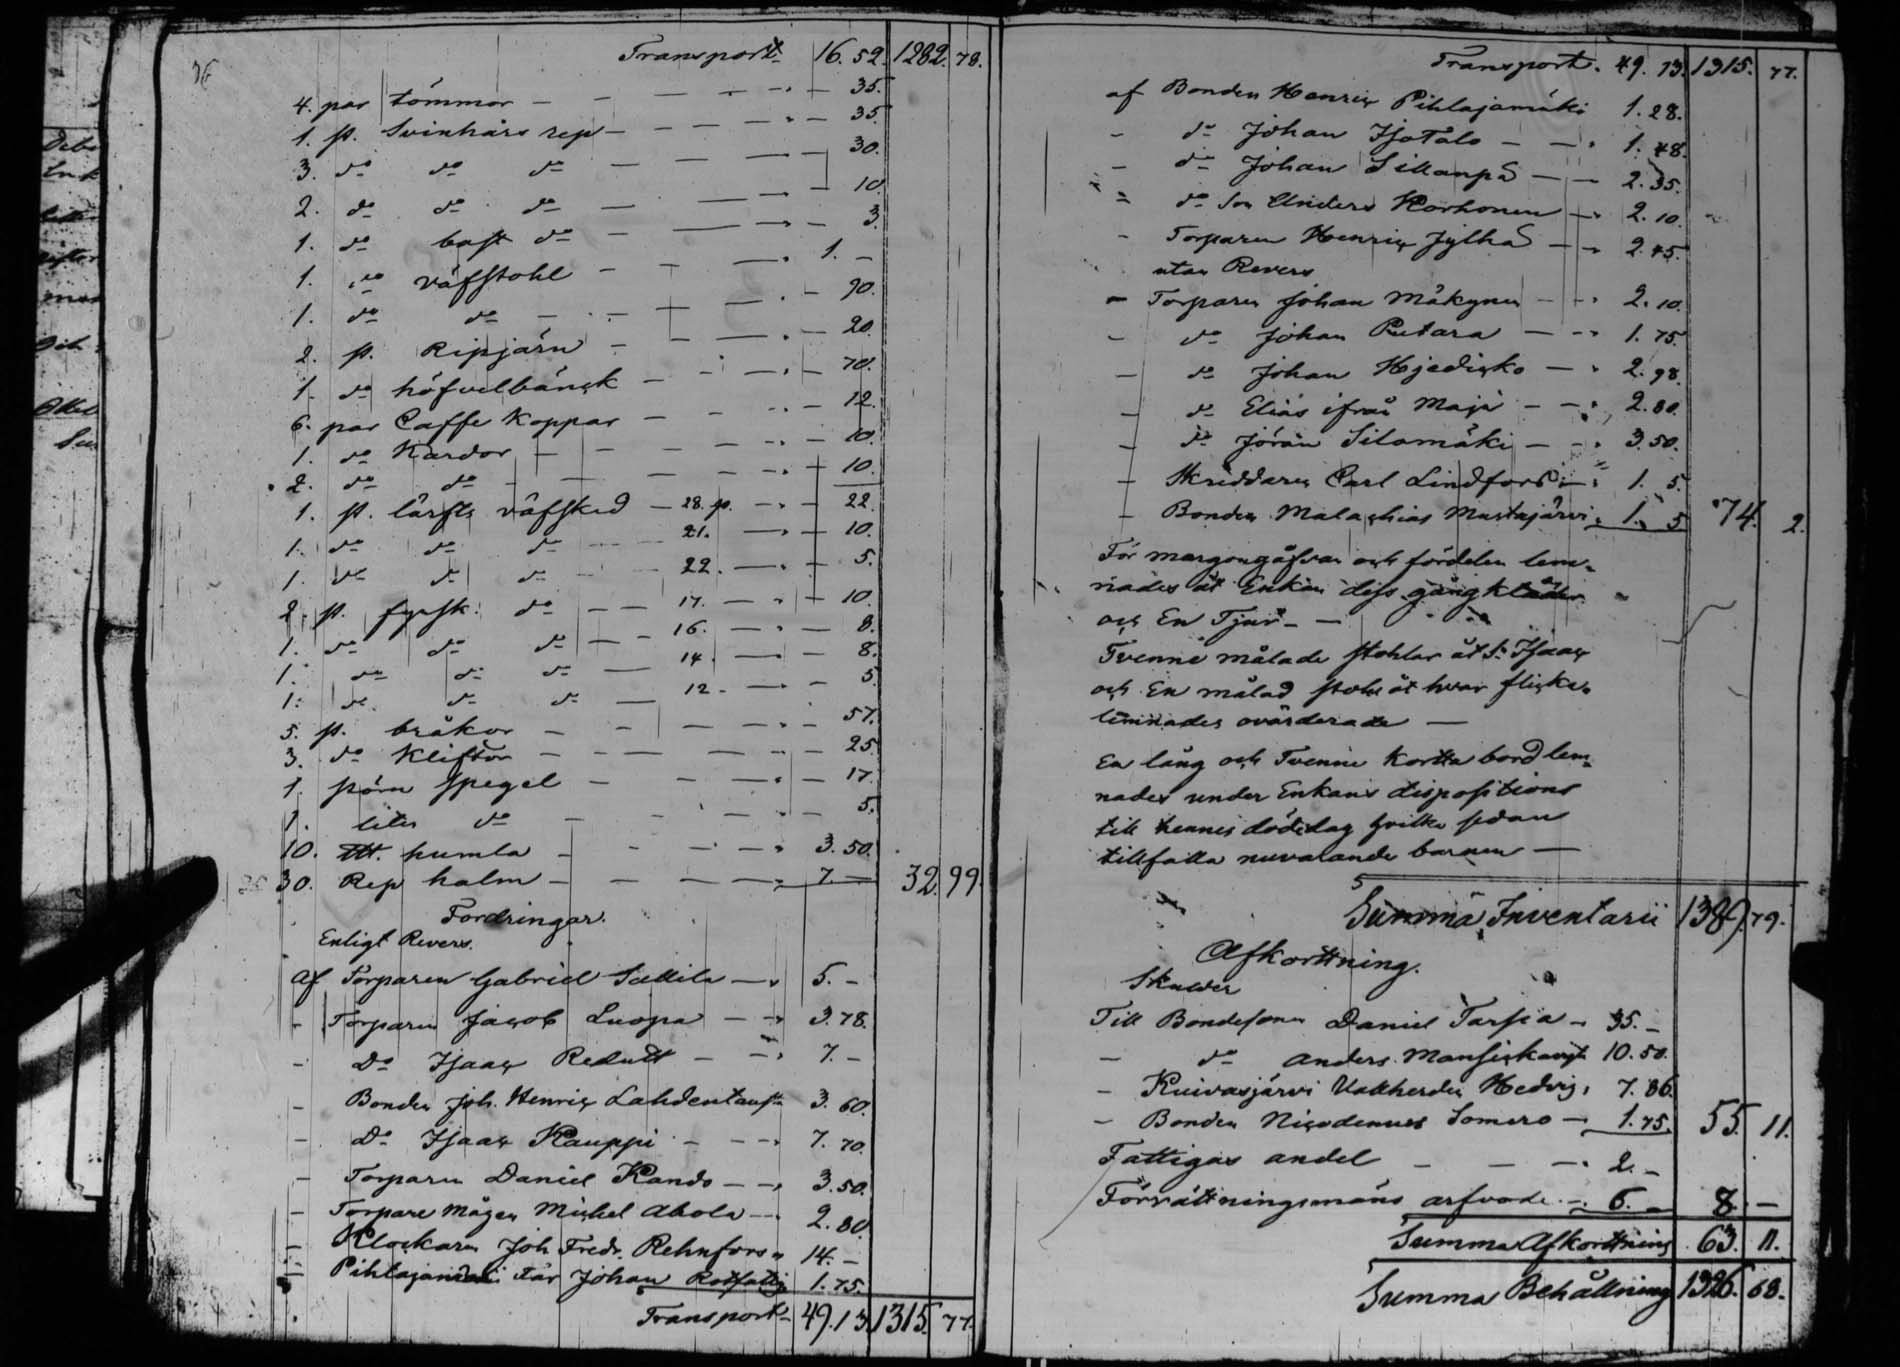 Transport 16. 52. 1282. 78.
4. par tömmar 35.
1. st. Svinhårs rep 35.
3. do do do 30.
2. do do do 10.
1. do bast do 3.
1. do väfstohl 1. –
1. do do 90.
2. st. Ripjärn 20.
1. do höfvelbänck 70.
6. par Caffe Koppar 12.
1. do Kardor 10.
2. do do 10.
1. st. lärfts väfsked 28. st. 22.
1. do do do 21. 10.
1. do do do 22. 5.
2. st. fyrsk. do 17. 10.
1. do do do 16. 8.
1. do do do 14. 8.
1. do do do 12. 5.
5. st. bråkor 57.
3. do Kliftor 25.
1. större spegel 17.
1. liten do 5.
10. humla 3. 50.
30. Rep halm 7. – 32. 99.
Fordringar.
Enligt Revers.
Af Torparen Gabriel 5. –
– Torparen Jacob Luopa 3. 78.
– Do Isaac 7. –
– Bonden Joh. Henric 3. 60.
– Do Isaac Kauppi 7. 70.
– Torparen Daniel 3. 50.
– Torpare mågen Michel Ahola 2. 80.
– Klockaren Joh Fredr. Rehnfors 14. –
– Far Johan 1. 75.
Transport 49. 13. 1315. 77.
Transport. 49. 13. 1315. 77.
af Bonden Henric Pihlajamäki 1. 28.
– do Johan Isotalo 1. 48.
– do Johan Sillanpä 2. 35.
– do Son Anders Korhonen 2. 10.
– Torparen Henric Jylhä 2. 45.
utan Revers
– Torparen Johan Mäkynen 2. 10.
– do Johan 1. 75.
– do Johan 2. 98.
– do Elias ifrån 2. 80.
– do Jöran Silomäki 3. 50.
– Skräddaren Carl Lindfors 1. 5.
– Bonden Malachias Mustajärvi 1. 5 74. 2.
För morgongåfvan och fördelen lem-
nades åt Enkan dess gångkläder
och En Tjur
Tvenne målade stohlar åt S. Isaac
och En målad stohl åt hvar flicka
lemnades ovärderade –
En lång och Tvenne Kortta bord lem-
nades under Enkans dispositions
till hennes dödsdag hvilka sedan
tillfalla nuvarande barnen –
Summa Inventarii 1389. 79.
Afkorttning.
Skulder
Till Bondesonen Daniel 35. –
– do Anders 10. 50.
– Kuivasjärvi Vallherden Hedvig 7. 86.
– Bonden Nicodemus Somero 1. 75. 55. 11.
Fattigas andel 2. –
Förrättningsmäns arfvode 6. – 8. –
Summa Afkorttning 63. 11.
Summa Behållning 1326. 68.